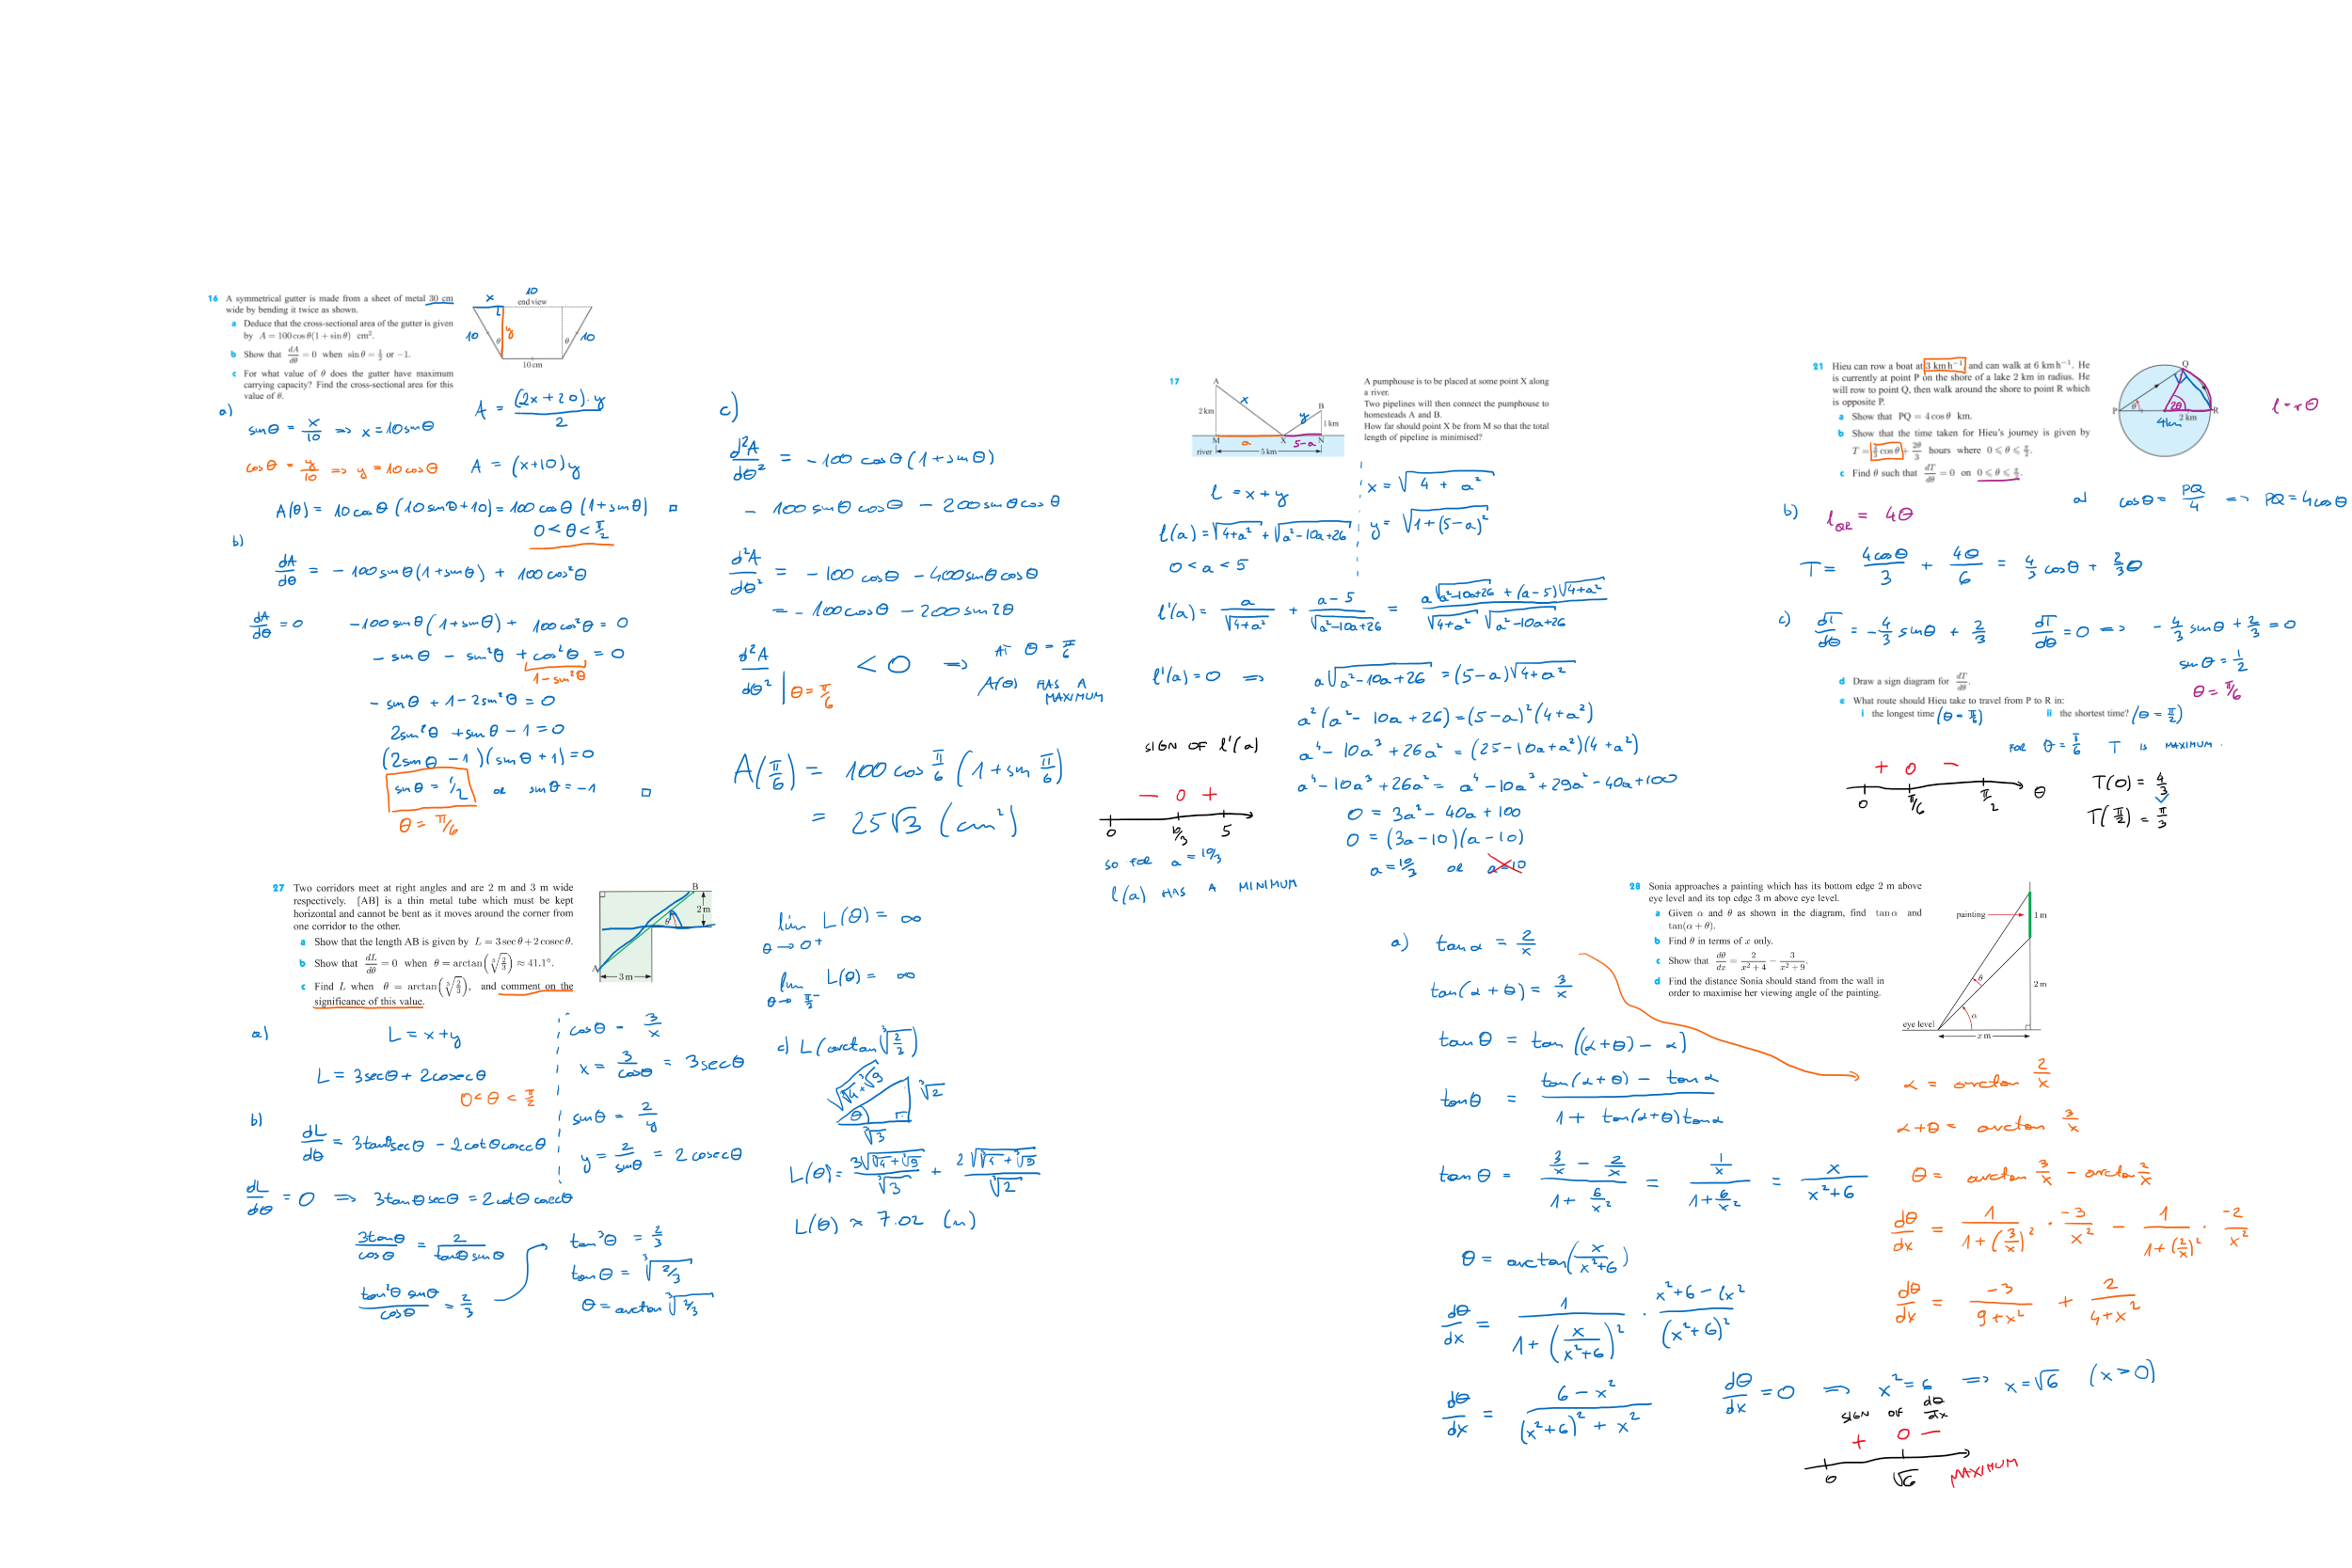 16 A symmetrical gutter is made from a sheet of metal 30 cm
wide by bending it twice as shown.
a Deduce that the cross-sectional area of the gutter is given
by A = 100 cos θ(1 + sin θ) cm².
b Show that dA/dθ = 0 when sin θ = 1/2 or −1.
c For what value of θ does the gutter have maximum
carrying capacity? Find the cross-sectional area for this
value of θ.
x 10
end view
10 y 10
θ θ
10 cm
a)
sinθ = x/10 => x = 10sinθ
cosθ = y/10 => y = 10cosθ
A = (2x+20)·y / 2
A = (x+10)y
A(θ) = 10cosθ (10sinθ+10) = 100cosθ (1+sinθ) □
0 < θ < π/2
b)
dA/dθ = -100sinθ(1+sinθ) + 100cos²θ
dA/dθ = 0 -100sinθ(1+sinθ) + 100cos²θ = 0
-sinθ - sin²θ + cos²θ = 0
1-sin²θ
-sinθ + 1 - 2sin²θ = 0
2sin²θ + sinθ - 1 = 0
(2sinθ - 1)(sinθ + 1) = 0
sinθ = 1/2 or sinθ = -1 □
θ = π/6
c)
d²A/dθ² = -100cosθ(1+sinθ)
- 100sinθcosθ - 200sinθcosθ
d²A/dθ² = -100cosθ - 400sinθcosθ
= -100cosθ - 200sin2θ
d²A/dθ² | θ=π/6 < 0 => AT θ = π/6
A(θ) HAS A
MAXIMUM
A(π/6) = 100cos π/6 (1+sin π/6)
= 25√3 (cm²)
17
A
2 km
x
y
B
1 km
M a X 5-a N
river 5 km
A pumphouse is to be placed at some point X along
a river.
Two pipelines will then connect the pumphouse to
homesteads A and B.
How far should point X be from M so that the total
length of pipeline is minimised?
l = x+y
x = √(4+a²)
l(a) = √(4+a²) + √(a²-10a+26)
y = √(1+(5-a)²)
0 < a < 5
l'(a) = a/√(4+a²) + (a-5)/√(a²-10a+26) = (a√(a²-10a+26) + (a-5)√(4+a²)) / (√(4+a²) √(a²-10a+26))
l'(a) = 0 => a√(a²-10a+26) = (5-a)√(4+a²)
a²(a²-10a+26) = (5-a)²(4+a²)
a⁴-10a³+26a² = (25-10a+a²)(4+a²)
a⁴-10a³+26a² = a⁴-10a³+29a²-40a+100
0 = 3a²-40a+100
0 = (3a-10)(a-10)
a = 10/3 or a=10
SIGN OF l'(a)
- 0 +
0 10/3 5
SO FOR a = 10/3
l(a) HAS A MINIMUM
21 Hieu can row a boat at 3 km h⁻¹ and can walk at 6 km h⁻¹. He
is currently at point P on the shore of a lake 2 km in radius. He
will row to point Q, then walk around the shore to point R which
is opposite P.
a Show that PQ = 4 cos θ km.
b Show that the time taken for Hieu's journey is given by
T = 4/3 cos θ + 2θ/3 hours where 0 ⩽ θ ⩽ π/2.
c Find θ such that dT/dθ = 0 on 0 ⩽ θ ⩽ π/2.
Q
P θ 2θ R
2 km
4km
l = rθ
a) cosθ = PQ/4 => PQ = 4cosθ
b) l_QR = 4θ
T = 4cosθ/3 + 4θ/6 = 4/3 cosθ + 2/3 θ
c) dT/dθ = -4/3 sinθ + 2/3 dT/dθ = 0 => -4/3 sinθ + 2/3 = 0
sinθ = 1/2
θ = π/6
d Draw a sign diagram for dT/dθ.
e What route should Hieu take to travel from P to R in:
i the longest time (θ = π/6) ii the shortest time? (θ = π/2)
FOR θ = π/6 T IS MAXIMUM.
+ 0 -
0 π/6 π/2 θ
T(0) = 4/3
T(π/2) = π/3
27 Two corridors meet at right angles and are 2 m and 3 m wide
respectively. [AB] is a thin metal tube which must be kept
horizontal and cannot be bent as it moves around the corner from
one corridor to the other.
a Show that the length AB is given by L = 3 sec θ + 2 cosec θ.
b Show that dL/dθ = 0 when θ = arctan(∛(2/3)) ≈ 41.1°.
c Find L when θ = arctan(∛(2/3)), and comment on the
significance of this value.
B
2 m
θ
A
3 m
a) L = x+y
L = 3secθ + 2cosecθ
0 < θ < π/2
cosθ = 3/x
x = 3/cosθ = 3secθ
sinθ = 2/y
y = 2/sinθ = 2cosecθ
b)
dL/dθ = 3tanθsecθ - 2cotθcosecθ
dL/dθ = 0 => 3tanθsecθ = 2cotθcosecθ
3tanθ/cosθ = 2/(tanθ sinθ)
tan²θ sinθ/cosθ = 2/3
tan³θ = 2/3
tanθ = ∛(2/3)
θ = arctan ∛(2/3)
lim θ→0⁺ L(θ) = ∞
lim θ→π/2⁻ L(θ) = ∞
c) L(arctan ∛(2/3))
√(∛4+∛9)
∛2
θ
∛3
L(θ) = 3√(∛4+∛9)/∛3 + 2√(∛4+∛9)/∛2
L(θ) ≈ 7.02 (m)
28 Sonia approaches a painting which has its bottom edge 2 m above
eye level and its top edge 3 m above eye level.
a Given α and θ as shown in the diagram, find tan α and
tan(α + θ).
b Find θ in terms of x only.
c Show that dθ/dx = 2/(x² + 4) − 3/(x² + 9).
d Find the distance Sonia should stand from the wall in
order to maximise her viewing angle of the painting.
painting
1 m
θ
2 m
α
eye level
x m
a) tanα = 2/x
tan(α+θ) = 3/x
tanθ = tan((α+θ) - α)
tanθ = (tan(α+θ) - tanα) / (1 + tan(α+θ)tanα)
tanθ = (3/x - 2/x)/(1 + 6/x²) = (1/x)/(1+6/x²) = x/(x²+6)
θ = arctan(x/(x²+6))
dθ/dx = 1/(1+(x/(x²+6))²) · (x²+6-2x²)/(x²+6)²
dθ/dx = (6-x²)/((x²+6)²+x²)
α = arctan 2/x
α+θ = arctan 3/x
θ = arctan 3/x - arctan 2/x
dθ/dx = 1/(1+(3/x)²) · -3/x² - 1/(1+(2/x)²) · -2/x²
dθ/dx = -3/(9+x²) + 2/(4+x²)
dθ/dx = 0 => x² = 6 => x = √6 (x>0)
SIGN OF dθ/dx
+ 0 -
0 √6 MAXIMUM